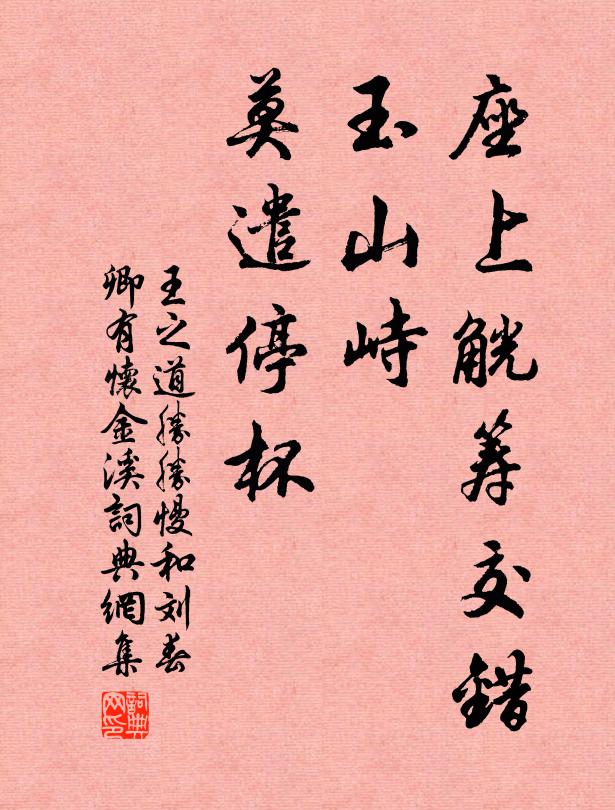 座上觥筹交错
玉山峙
莫遣停杯
王之道勝勝慢和刘春
卿有懷金溪詞典網集
詞典网印